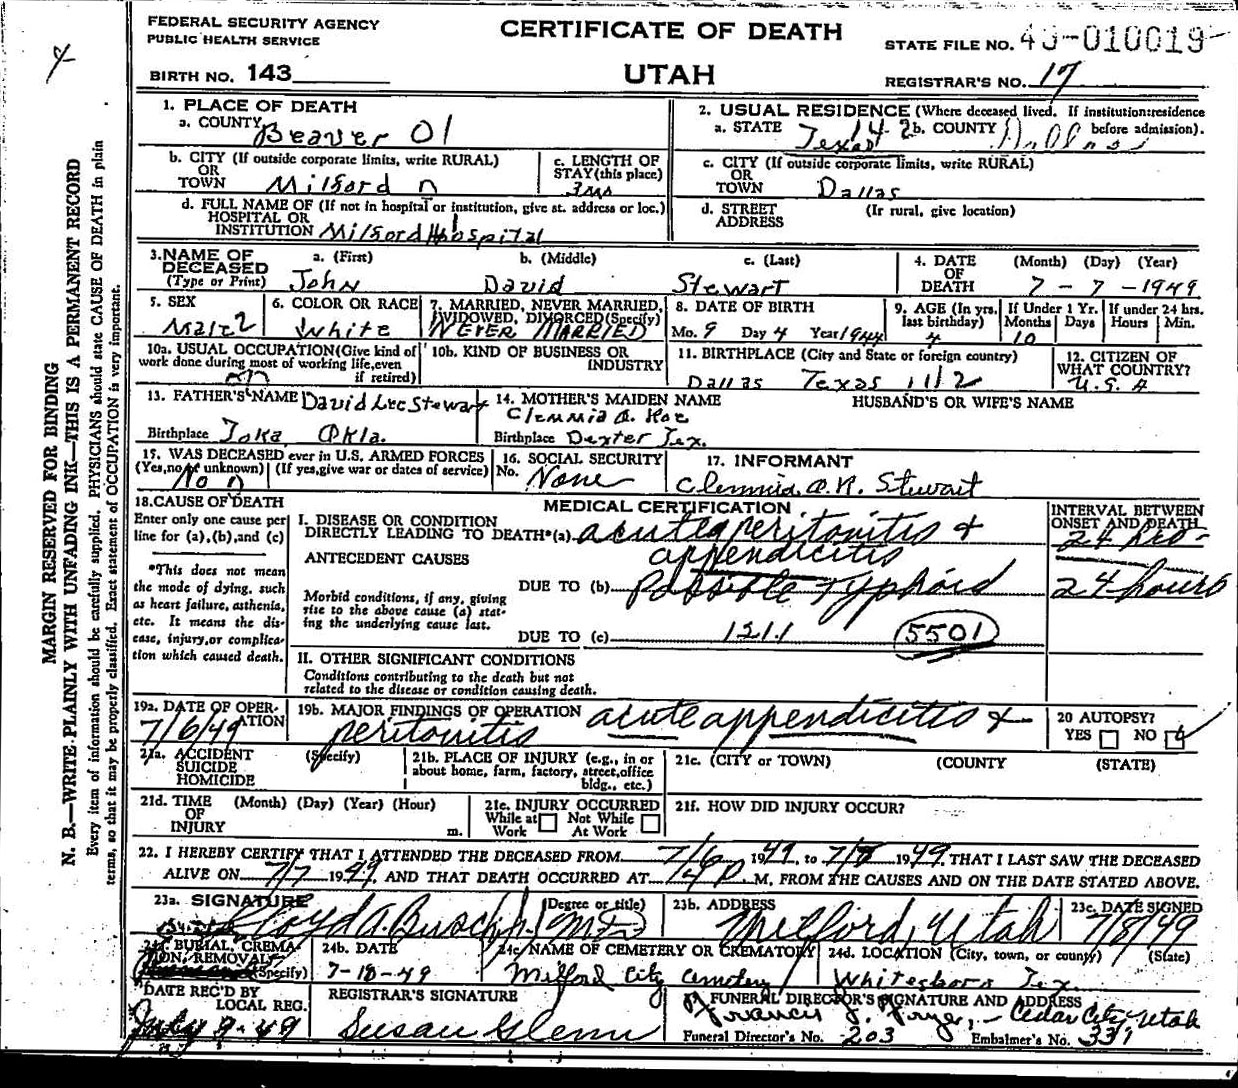 FEDERAL SECURITY AGENCY
PUBLIC HEALTH SERVICE
CERTIFICATE OF DEATH
STATE FILE NO. 49-010019
BIRTH NO. 143
UTAH
REGISTRAR'S NO. 17
MARGIN RESERVED FOR BINDING
N. B.—WRITE PLAINLY WITH UNFADING INK—THIS IS A PERMANENT RECORD
Every item of information should be carefully supplied. PHYSICIANS should state CAUSE OF DEATH in plain
terms, so that it may be properly classified. Exact statement of OCCUPATION is very important.
1. PLACE OF DEATH
a. COUNTY Beaver 01
2. USUAL RESIDENCE (Where deceased lived. If institution: residence
before admission).
a. STATE Texas 14-2 b. COUNTY Dallas
b. CITY (If outside corporate limits, write RURAL)
OR
TOWN Milford
c. LENGTH OF
STAY (this place)
c. CITY (If outside corporate limits, write RURAL)
OR
TOWN Dallas
d. FULL NAME OF (If not in hospital or institution, give st. address or loc.)
HOSPITAL OR
INSTITUTION Milford Hospital
d. STREET (If rural, give location)
ADDRESS
3. NAME OF DECEASED (Type or Print)
a. (First) b. (Middle) c. (Last)
John David Stewart
4. DATE OF DEATH (Month) (Day) (Year)
7-7-1949
5. SEX Male 2
6. COLOR OR RACE White
7. MARRIED, NEVER MARRIED,
WIDOWED, DIVORCED (Specify)
NEVER MARRIED
8. DATE OF BIRTH
Mo. 9 Day 4 Year 1944
9. AGE (In yrs. last birthday) 4
If Under 1 Yr. Months Days 10
If under 24 hrs. Hours Min.
10a. USUAL OCCUPATION (Give kind of
work done during most of working life, even
if retired)
10b. KIND OF BUSINESS OR
INDUSTRY
11. BIRTHPLACE (City and State or foreign country)
Dallas Texas
12. CITIZEN OF
WHAT COUNTRY?
U.S.A
13. FATHER'S NAME David Lee Stewart
Birthplace Okla.
14. MOTHER'S MAIDEN NAME
Birthplace Dexter Tex.
HUSBAND'S OR WIFE'S NAME
15. WAS DECEASED ever in U.S. ARMED FORCES
(Yes, no or unknown) (If yes, give war or dates of service)
No
16. SOCIAL SECURITY
No. None
17. INFORMANT
Stewart
18. CAUSE OF DEATH
Enter only one cause per
line for (a), (b), and (c)
*This does not mean
the mode of dying, such
as heart failure, asthenia,
etc. It means the dis-
ease, injury, or complica-
tion which caused death.
MEDICAL CERTIFICATION
I. DISEASE OR CONDITION
DIRECTLY LEADING TO DEATH*(a) acute peritonitis +
appendicitis
INTERVAL BETWEEN
ONSET AND DEATH
24 hrs-
ANTECEDENT CAUSES
DUE TO (b) possible typhoid
24 hours
Morbid conditions, if any, giving
rise to the above cause (a) stat-
ing the underlying cause last.
DUE TO (c) 5501
II. OTHER SIGNIFICANT CONDITIONS
Conditions contributing to the death but not
related to the disease or condition causing death.
19a. DATE OF OPERATION
7/6/49
19b. MAJOR FINDINGS OF OPERATION acute appendicitis +
peritonitis
20 AUTOPSY?
YES NO
21a. ACCIDENT (Specify)
SUICIDE
HOMICIDE
21b. PLACE OF INJURY (e.g., in or
about home, farm, factory, street, office
bldg., etc.)
21c. (CITY or TOWN) (COUNTY (STATE)
21d. TIME (Month) (Day) (Year) (Hour)
OF
INJURY m.
21e. INJURY OCCURRED
While at Work Not While At Work
21f. HOW DID INJURY OCCUR?
22. I HEREBY CERTIFY THAT I ATTENDED THE DECEASED FROM 7/6 1949, to 7/7 1949, THAT I LAST SAW THE DECEASED
ALIVE ON 7/7 1949, AND THAT DEATH OCCURRED AT P. M, FROM THE CAUSES AND ON THE DATE STATED ABOVE.
23a. SIGNATURE (Degree or title)
23b. ADDRESS
Milford, Utah
23c. DATE SIGNED
7/8/49
24a. BURIAL, CREMA-
TION, REMOVAL (Specify)
24b. DATE
7-18-49
24c NAME OF CEMETERY OR CREMATORY
Milford City Cemetery
24d. LOCATION (City, town, or county) (State)
Whitesboro Tex
DATE REC'D BY
LOCAL REG.
July 9-49
REGISTRAR'S SIGNATURE
Susan Glenn
FUNERAL DIRECTOR'S SIGNATURE AND ADDRESS
Cedar City, Utah
Funeral Director's No. 203 Embalmer's No. 331